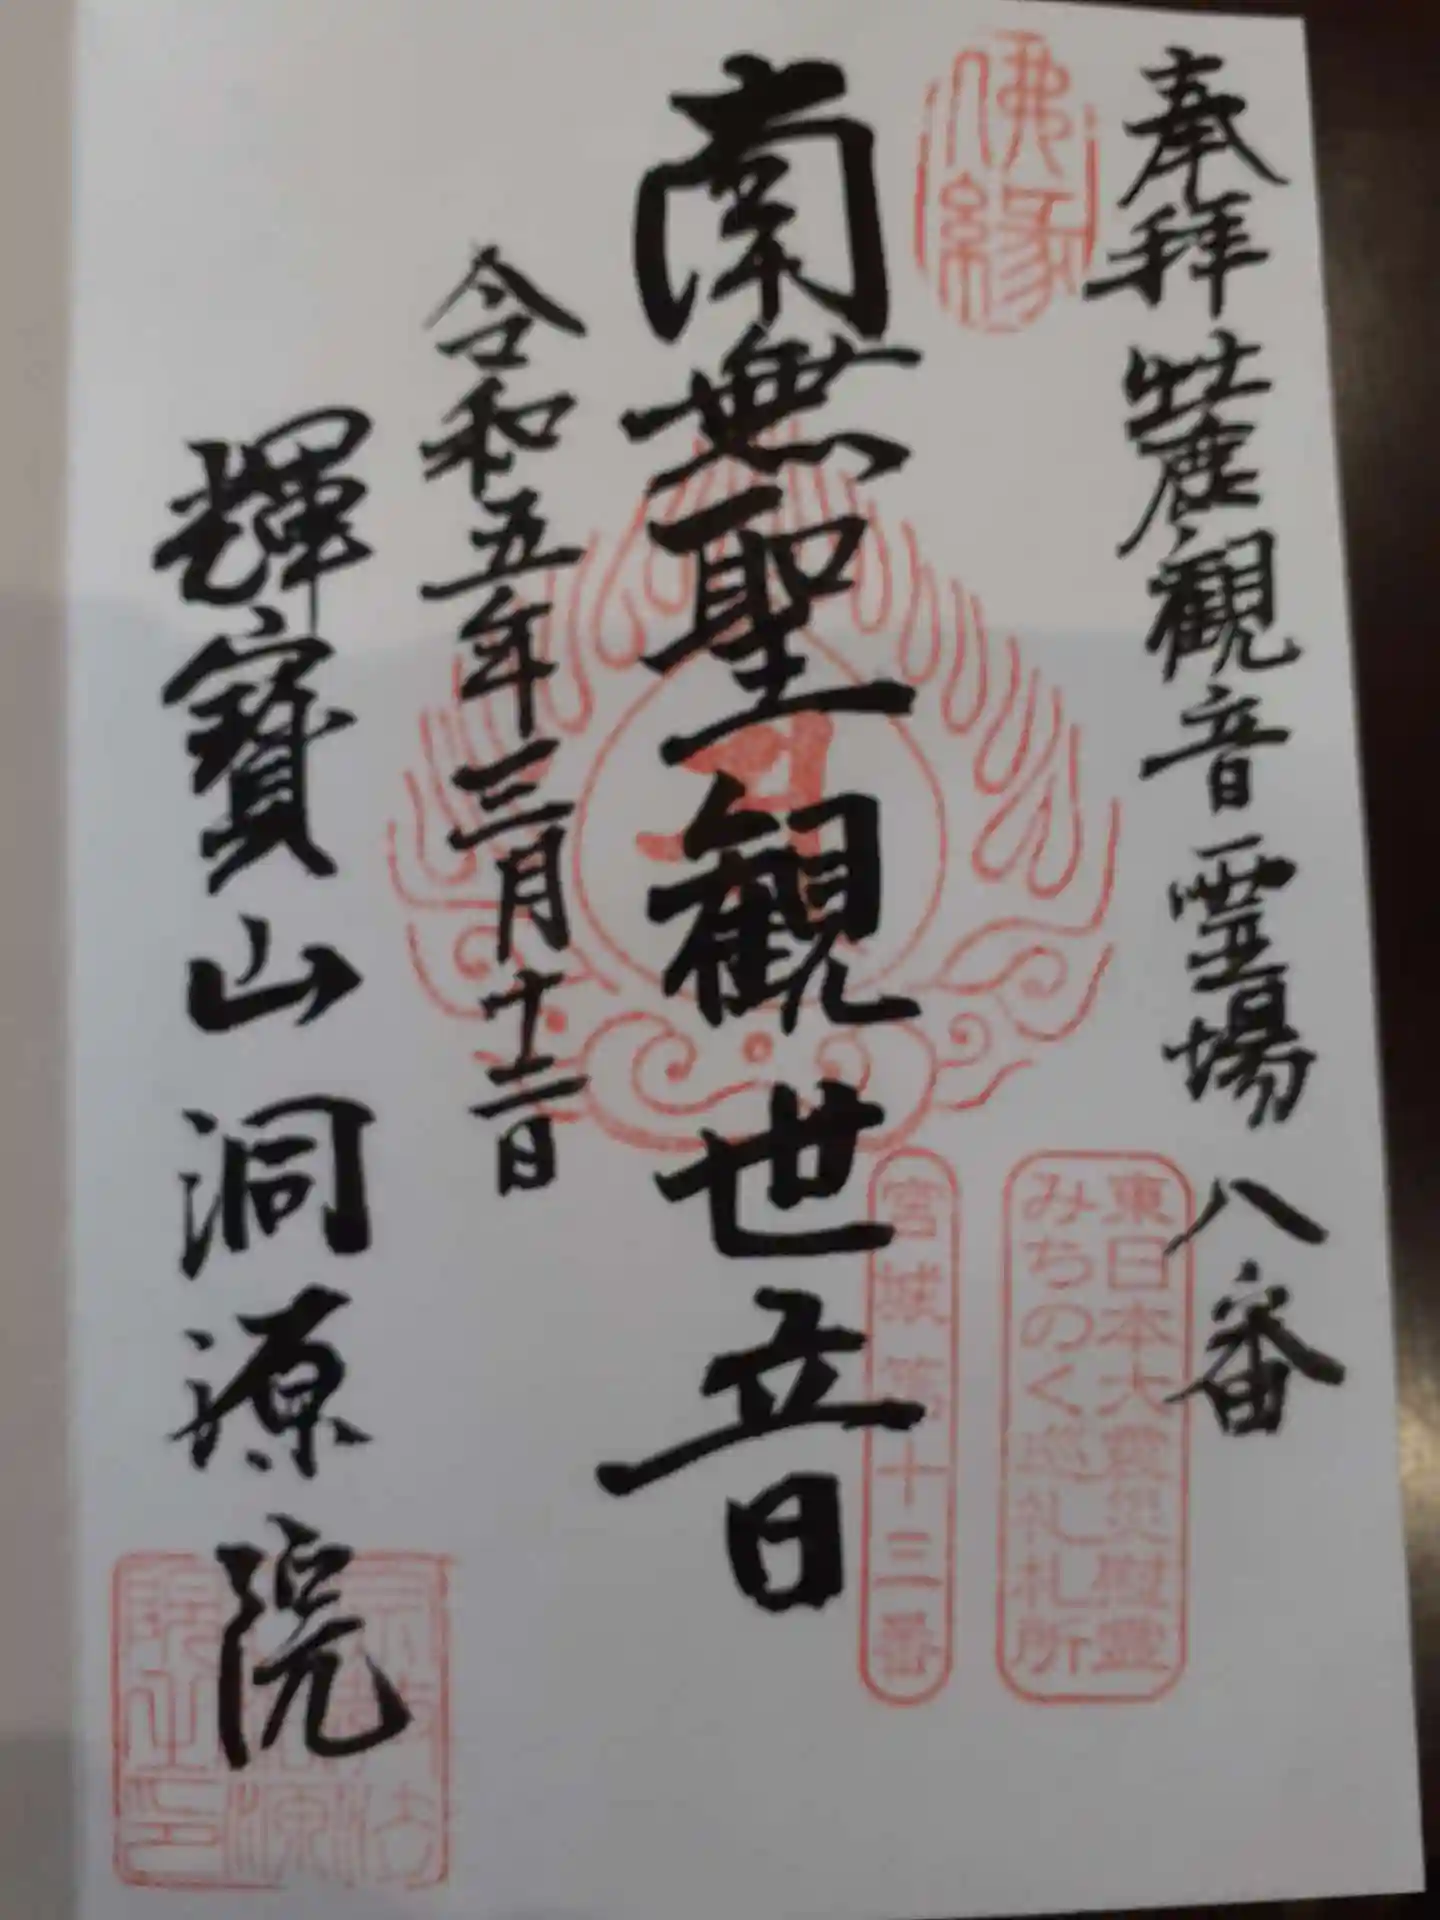 奉拝 牡鹿観音霊場 八番
佛縁
東日本大震災慰霊
みちのく巡礼札所
宮城 第十三番
南無聖観世音
令和五年三月十二日
輝寳山 洞源院